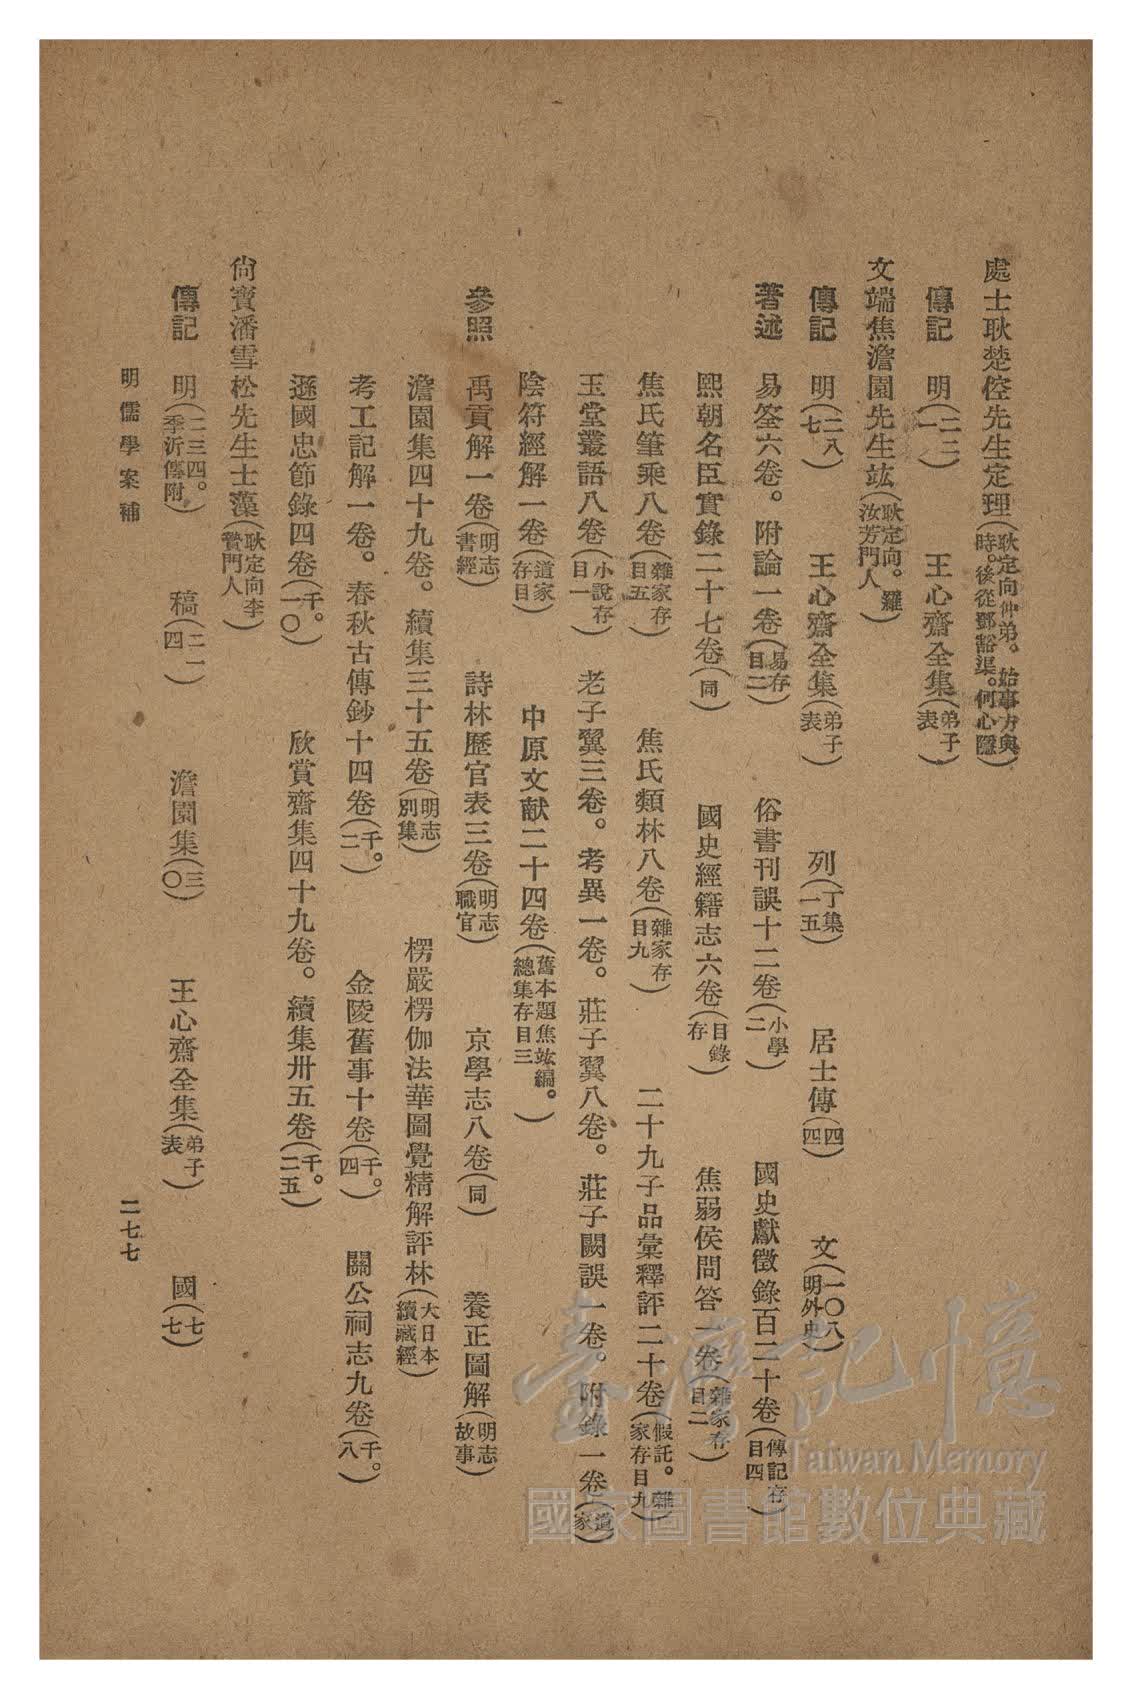 處士耿楚倥先生定理(耿定向仲弟。始事方與時。後從鄧豁渠。何心隱)
傳記　明(二二一)　王心齋全集(弟子表)
文端焦澹園先生竑(耿定向。羅汝芳門人)
傳記　明(二八七)　王心齋全集(弟子表)　列(丁集一五)　居士傳(四四)　文(一〇八明外史)
著述　易筌六卷。附論一卷(易存目二)　俗書刊誤十二卷(小學二)　國史獻徵錄百二十卷(傳記存目四)
熙朝名臣實錄二十七卷(同)　國史經籍志六卷(目錄存)　焦弱侯問答一卷(雜家存目二)
焦氏筆乘八卷(雜家存目五)　焦氏類林八卷(雜家存目九)　二十九子品彙釋評二十卷(假託。雜家存目九)
玉堂叢語八卷(小說存目一)　老子翼三卷。考異一卷。莊子翼八卷。莊子闕誤一卷。附錄一卷(道家)
陰符經解一卷(道家存目)　中原文献二十四卷(舊本題焦竑編。總集存目三)
參照　禹貢解一卷(明志書經)　詩林歷官表三卷(明志職官)　京學志八卷(同)　養正圖解(明志故事)
澹園集四十九卷。續集三十五卷(明志別集)　楞嚴楞伽法華圓覺精解評林(大日本續藏經)
考工記解一卷。春秋古傳鈔十四卷(千。二)　金陵舊事十卷(千。四)　關公祠志九卷(千。八)
遜國忠節錄四卷(千。一〇)　欣賞齋集四十九卷。續集卅五卷(千。二五)
尙寶潘雪松先生士藻(耿定向李贄門人)
傳記　明(二三四。季沂傳附)　稿(二一四)　澹園集(三〇)　王心齋全集(弟子表)　國(七七)
明儒學案補　二七七
臺灣記憶
Taiwan Memory
國家圖書館數位典藏